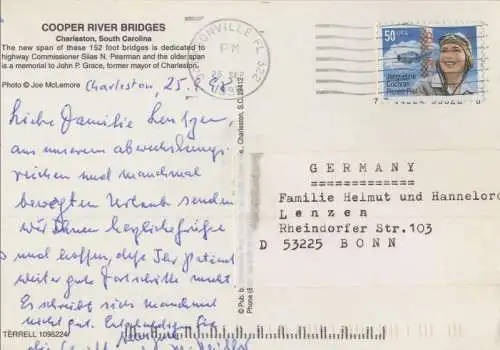 COOPER RIVER BRIDGES
Charleston, South Carolina
The new span of these 152 foot bridges is dedicated to
highway Commissioner Silas N. Pearman and the older span
is a memorial to John P. Grace, former mayor of Charleston.
Photo © Joe McLemore
Charleston, 25.
Liebe Familie Lenzen,
aus unserem abwechslungs-
reichen und manchmal
bewegten Urlaub senden
wir Ihnen herzliche Grüße
und hoffen, daß Ihr Patient
weiter gute Fortschritte macht.
Es schreibt sich manchmal
nicht gut. Entschuldigen Sie
die
TERRELL 1098224
© Pub. b
Phone (8
e, Charleston, S.C. 29412
SONVILLE FL 322
PM
50
USA
Jacqueline
Cochran
Pioneer Pilot
GERMANY
Familie Helmut und Hannelor
Lenzen
Rheindorfer Str.103
D 53225 BONN